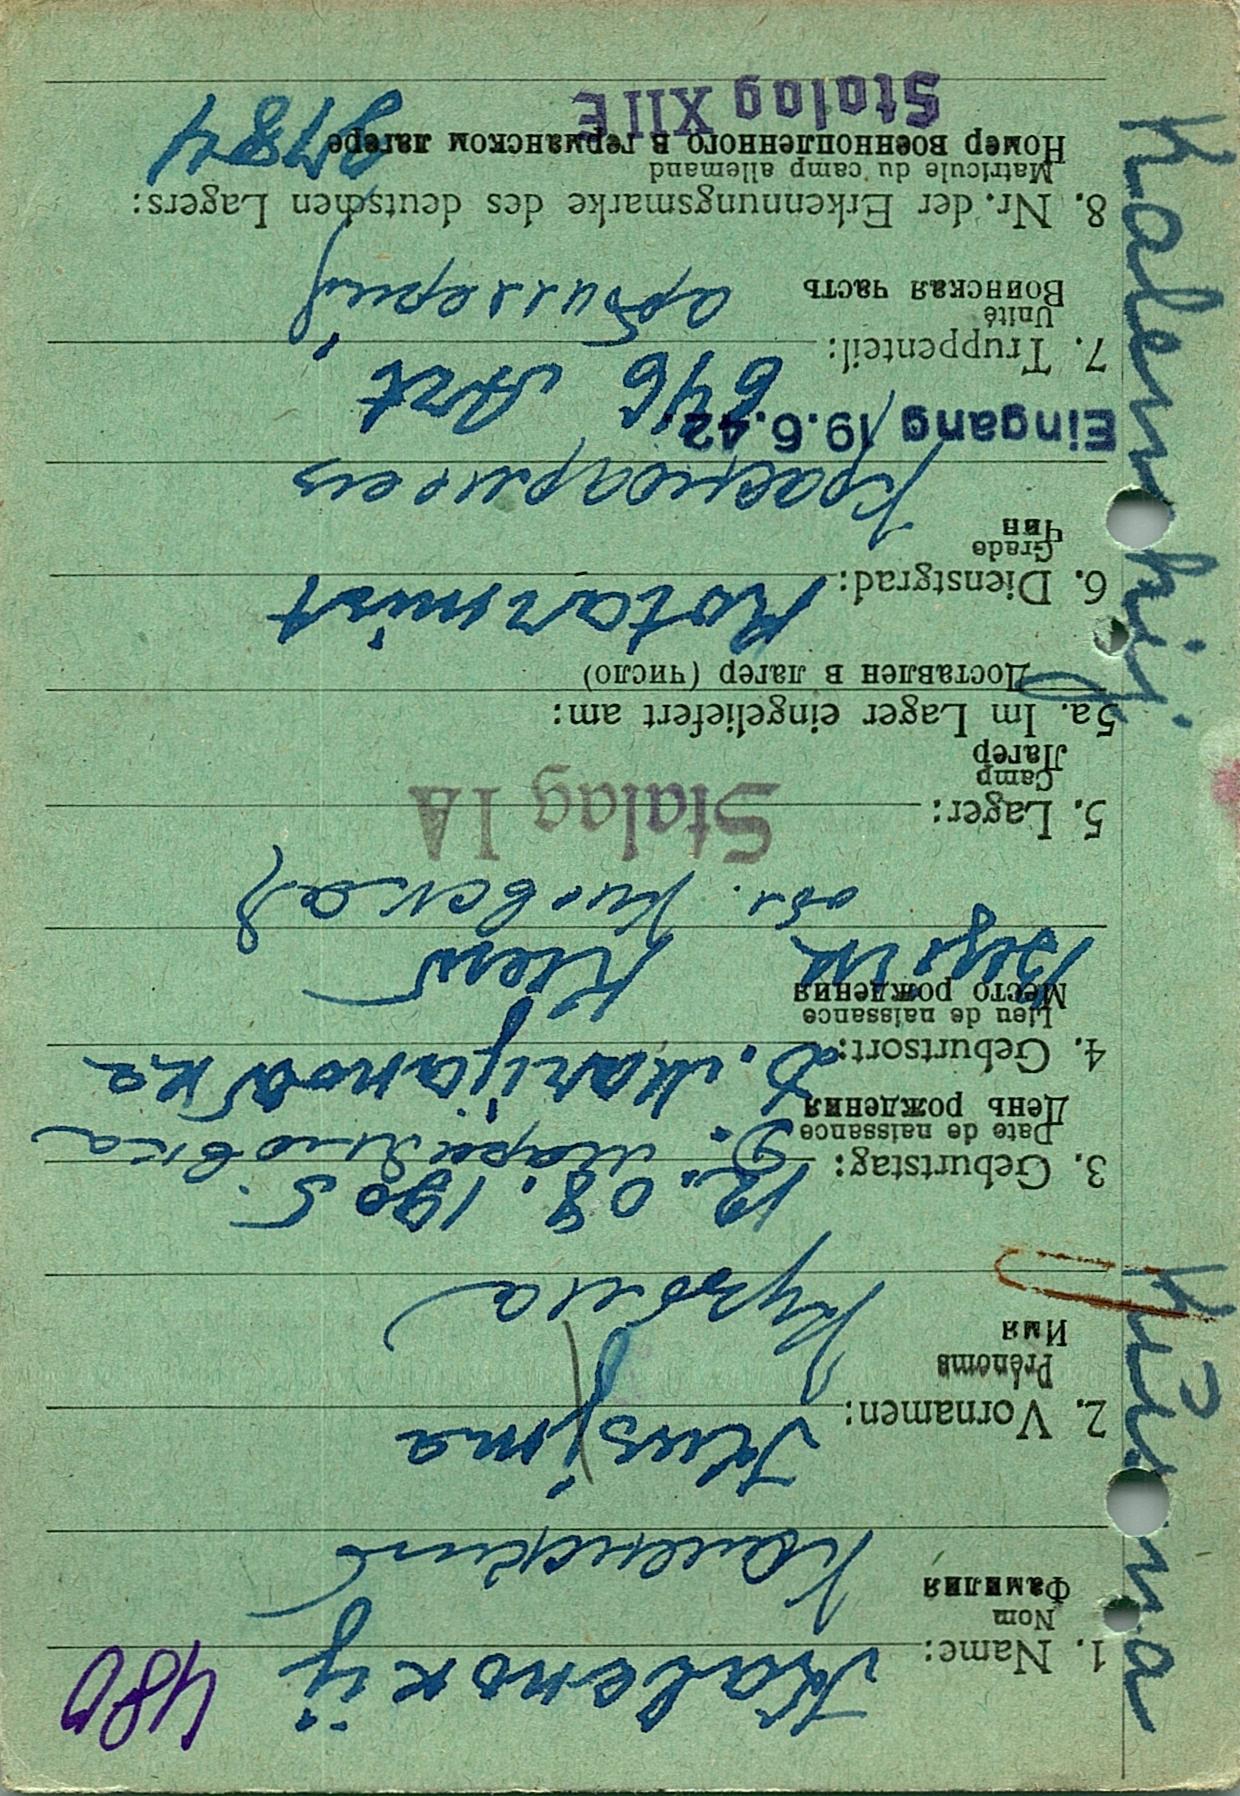 480
1. Name: Kalenskij
Nom
Фамилия
Каленский
2. Vornamen: Kusjma
Prénoms
Имя
Кузьма
3. Geburtstag: 12. 08. 1905.
Date de naissance
День рождения
4. Geburtsort: D. Marijanowka
Lieu de naissance
Место рождения
Kiew
обл. Киевская
5. Lager: Stalag IA
Camp
Лагерь
5a. Im Lager eingeliefert am:
Доставлен в лагерь (число)
6. Dienstgrad: Rotarmist
Grade
Чин
Красноармеец
Eingang 19.6.42.
646 Art
7. Truppenteil:
Unité
Воинская часть
артиллерия
8. Nr. der Erkennungsmarke des deutschen Lagers:
Matricule du camp allemand
Номер военнопленного в германском лагере
Stalag XIIE
Kalenskij
Kusma